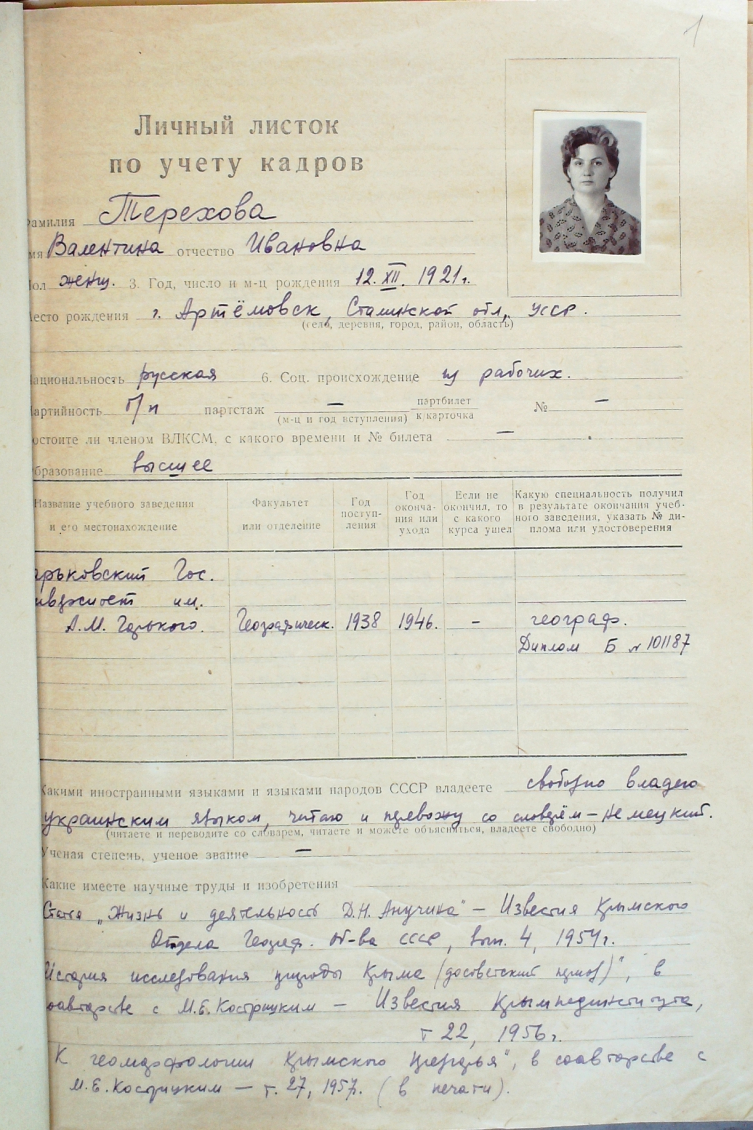 1
Личный листок
по учету кадров
амилия Терехова
мя Валентина отчество Ивановна
ол женщ. 3. Год, число и м-ц рождения 12.XII. 1921г.
есто рождения г. Артёмовск, Сталинской обл., УССР.
(село, деревня, город, район, область)
ациональность русская 6. Соц. происхождение из рабочих.
артийность б/п партстаж — партбилет № —
(м-ц и год вступления) к. карточка
остоите ли членом ВЛКСМ, с какого времени и № билета —
бразование высшее
Название учебного заведения и его местонахождение
Факультет или отделение
Год поступ-
ления
Год оконча-
ния или
ухода
Если не
окончил, то
с какого
курса ушел
Какую специальность получил
в результате окончания учеб-
ного заведения, указать № ди-
плома или удостоверения
арьковский Гос.
иверситет им.
А.М. Горького. Географическ. 1938 1946. — географ.
Диплом Б № 101187
Какими иностранными языками и языками народов СССР владеете свободно владею
украинским языком, читаю и перевожу со словарём – немецкий.
(читаете и переводите со словарем, читаете и можете объясняться, владеете свободно)
Ученая степень, ученое звание —
Какие имеете научные труды и изобретения
Статья „Жизнь и деятельность Д.Н. Анучина" – Известия Крымского
Отдела Географ. об-ва СССР, вып. 4, 1954г.
История исследования природы Крыма (досоветский период)", в
оавторстве с М.Е. Кострицким – Известия Крымпединститута,
т 22, 1956г.
К геоморфологии Крымского Предгорья", в соавторстве с
М.Е. Кострицким – т. 27, 1957. (в печати).